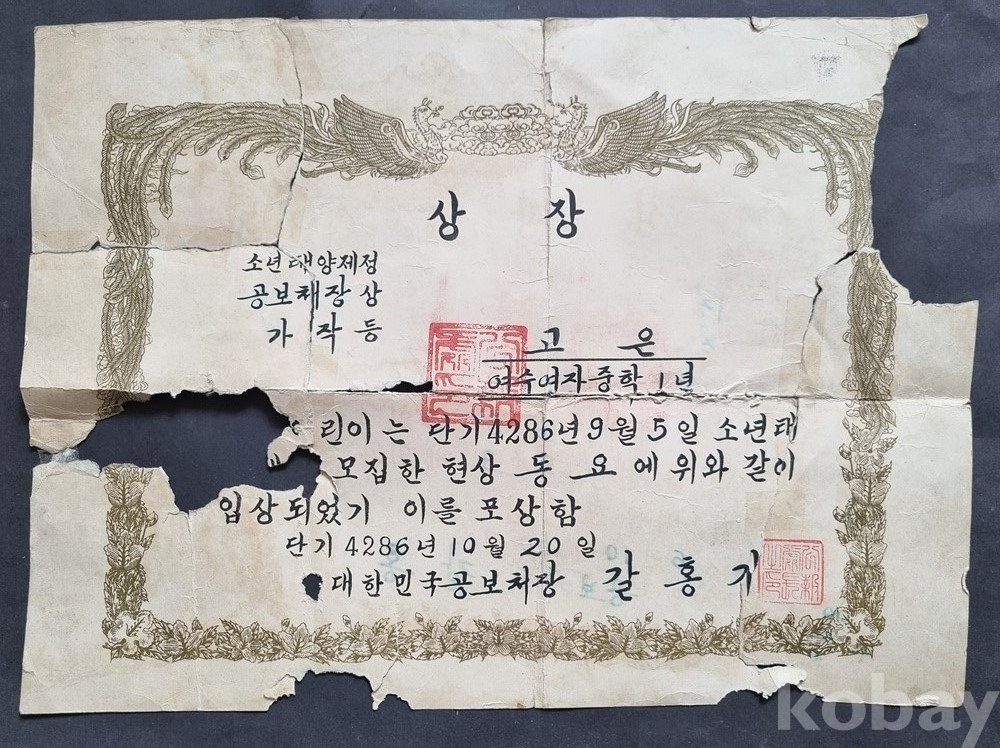 상 장
소년태양제정
공보처장상
가작등
고 은
여수여자중학 1년
린이는 단기4286년9월5일 소년태
모집한 현상 동요에 위와 같이
입상되었기 이를 포상함
단기4286년10월20일
대한민국공보처장 갈홍기
kobay